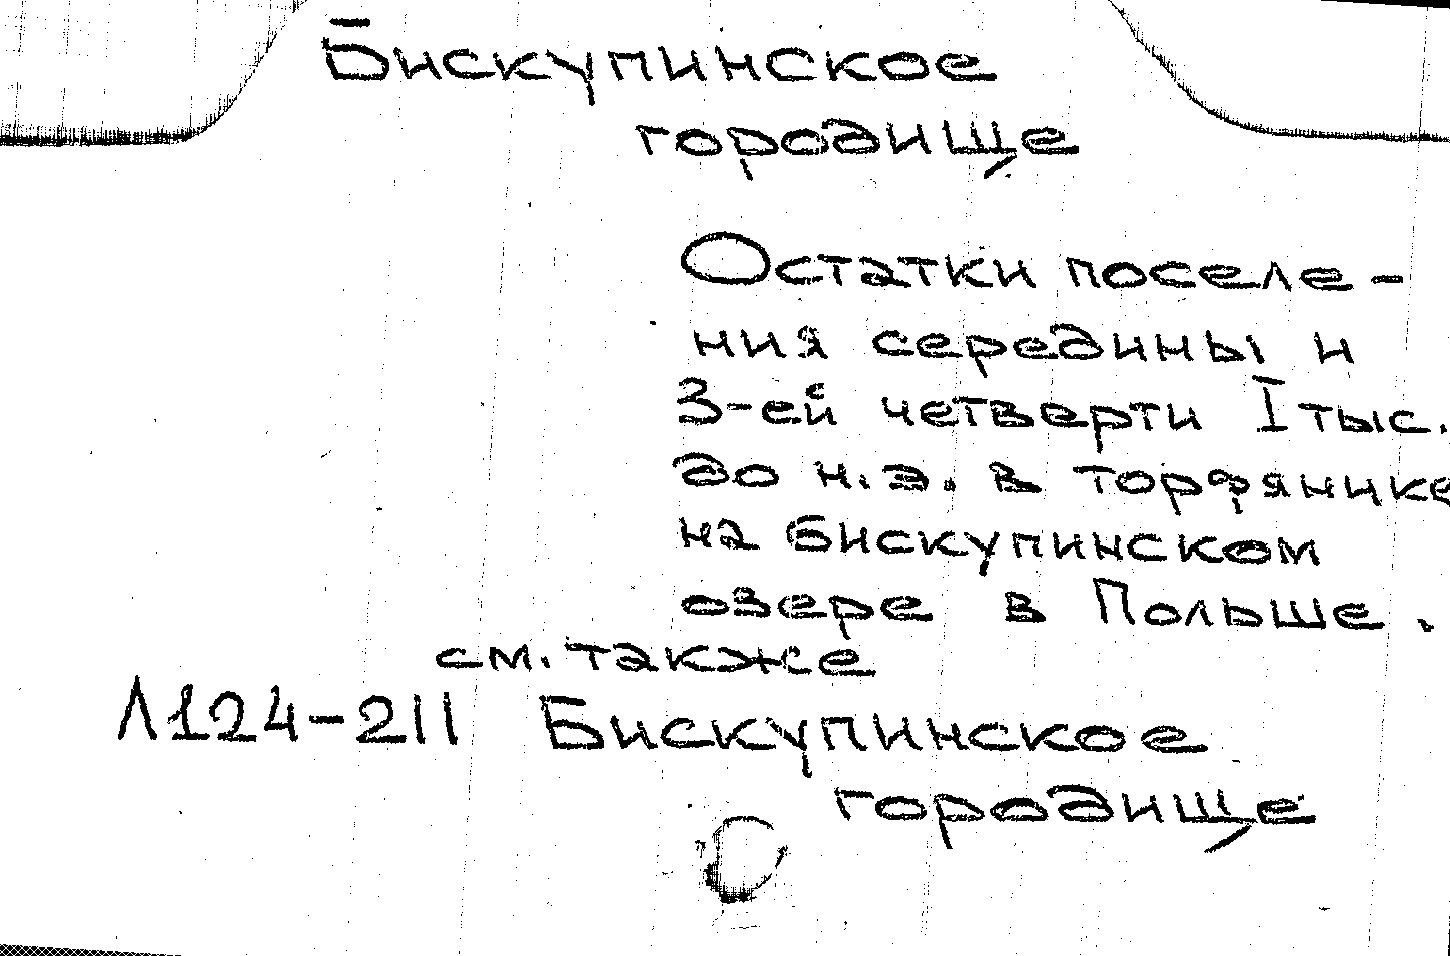 Бискупинское
городище
Остатки поселе-
ния середины и
3-ей четверти I тыс.
до н.э. в торфянике
на бискупинском
озере в Польше.
см. также
Л124-211 Бискупинское
городище